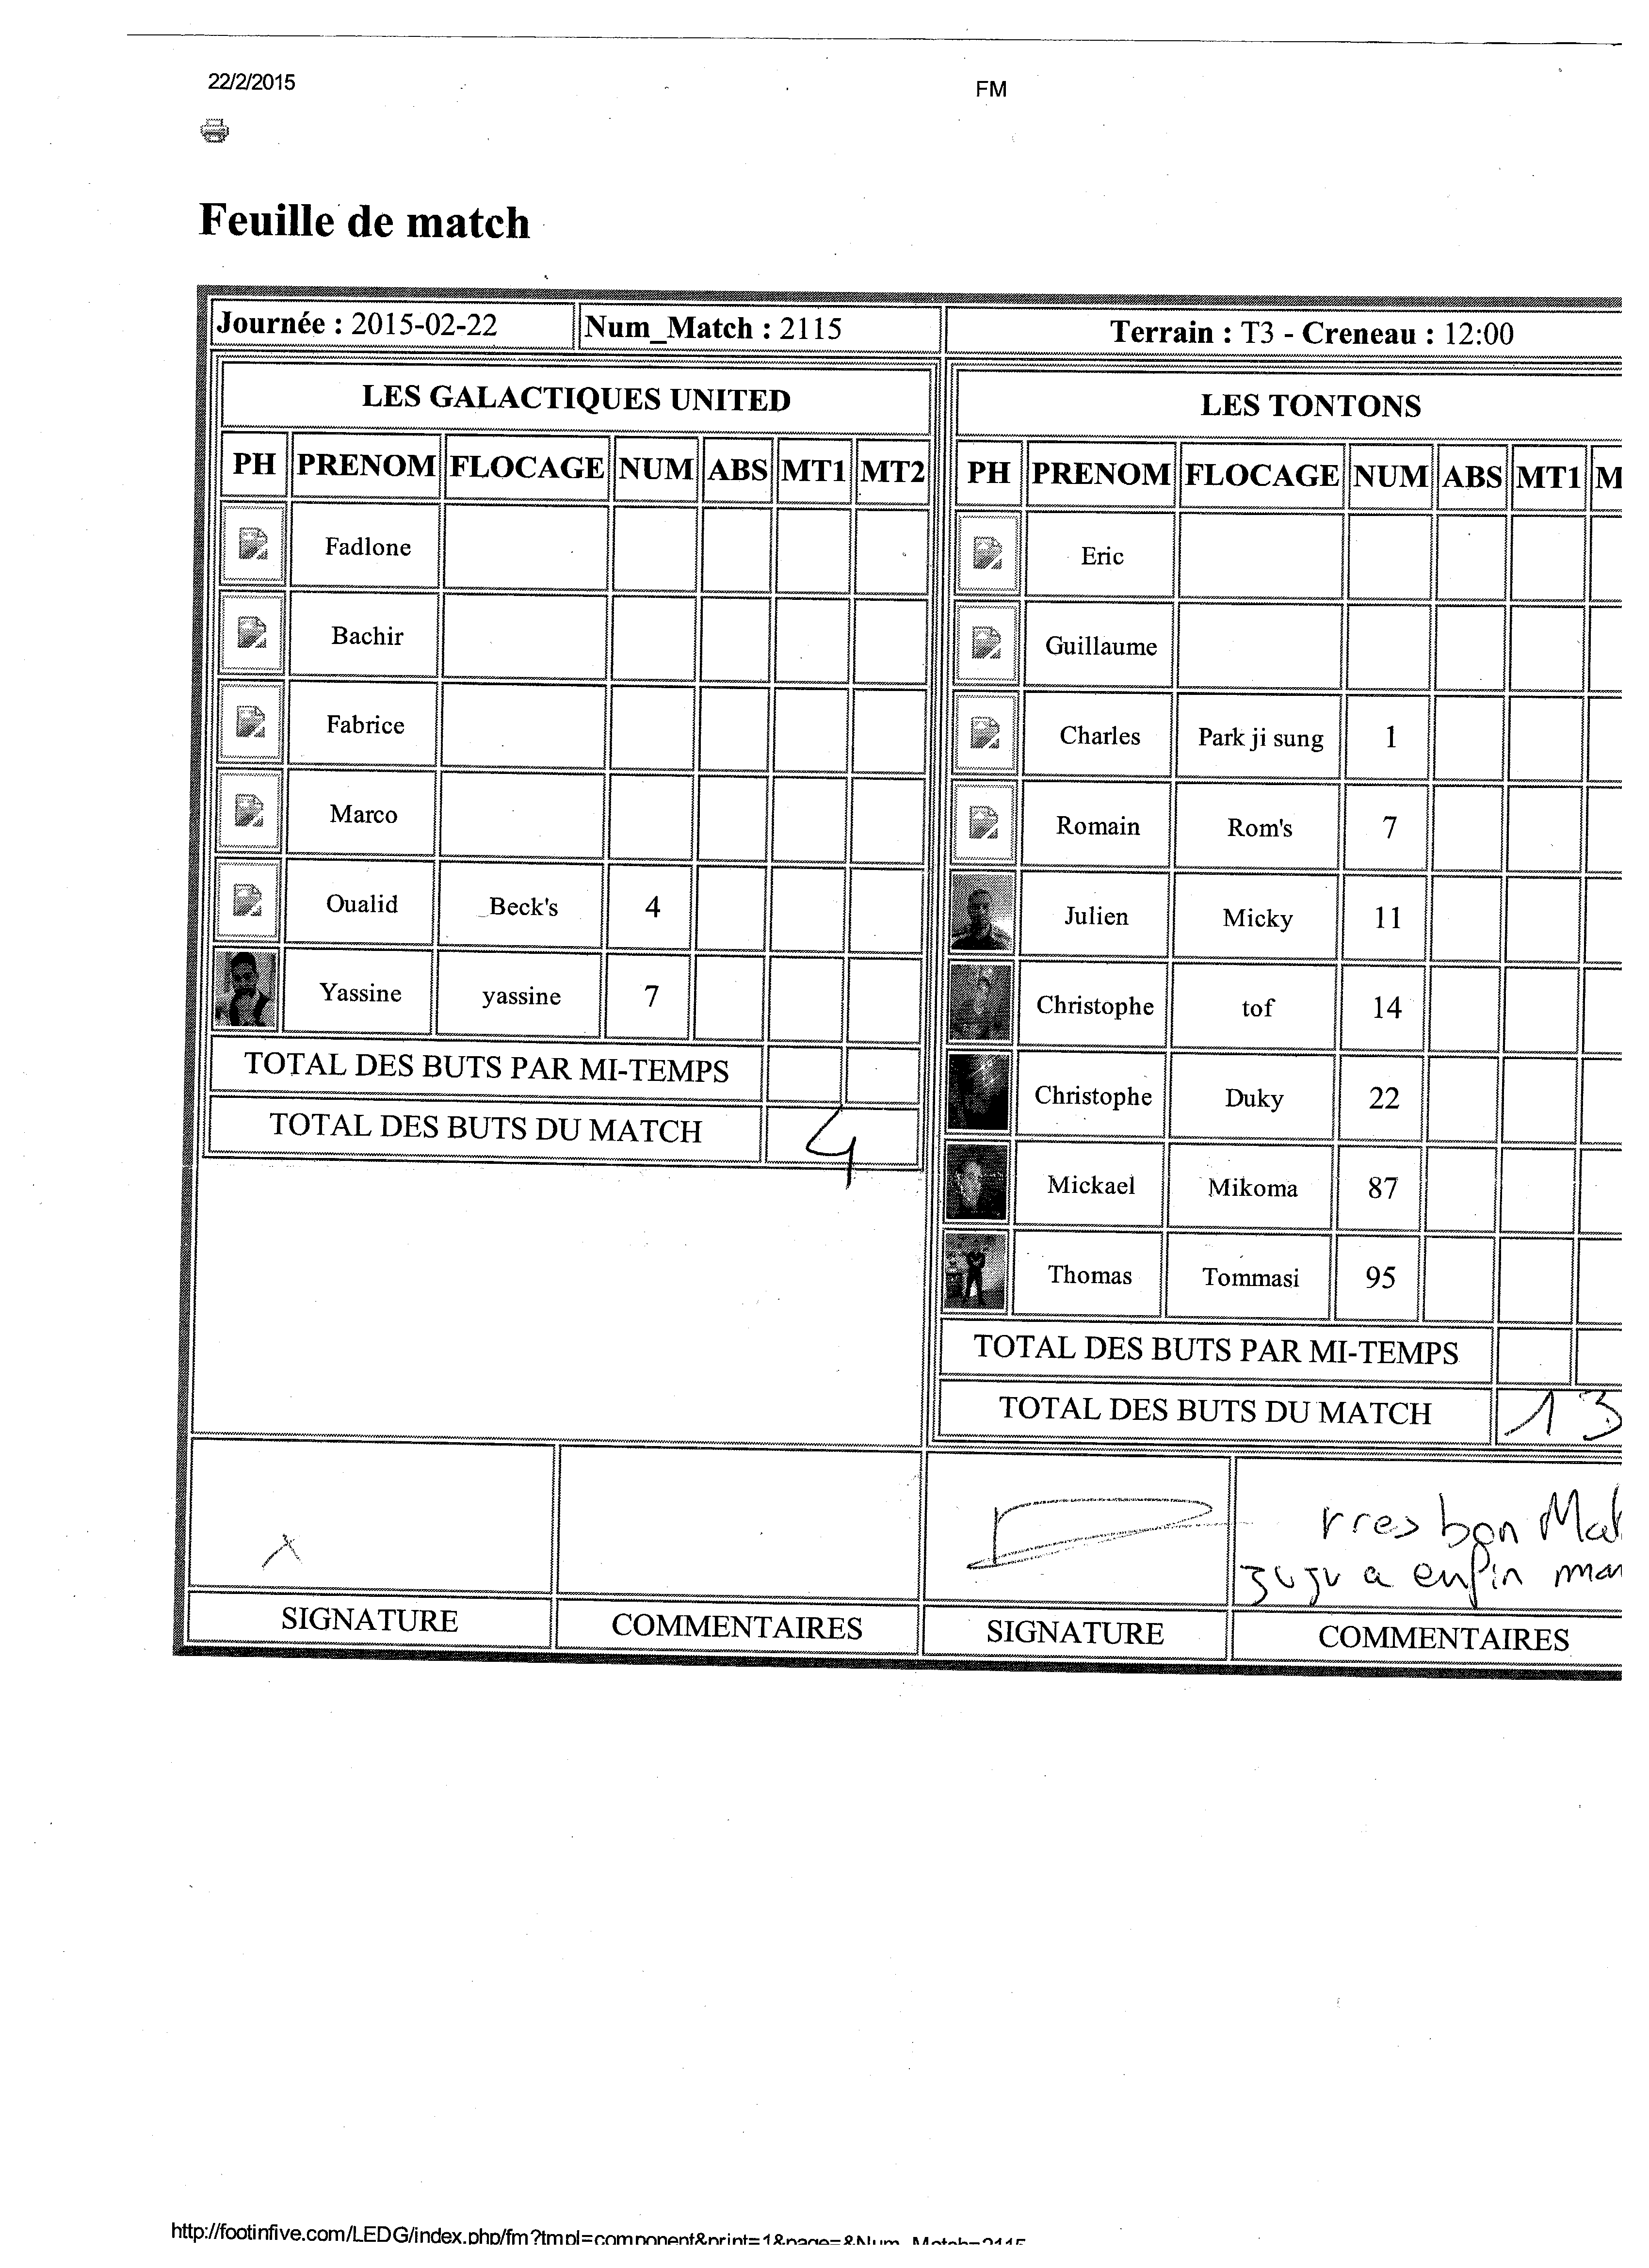 22/2/2015 FM
Feuille de match
Journée : 2015-02-22 Num_Match : 2115 Terrain : T3 - Creneau : 12:00
LES GALACTIQUES UNITED
PH PRENOM FLOCAGE NUM ABS MT1 MT2
Fadlone
Bachir
Fabrice
Marco
Oualid Beck's 4
Yassine yassine 7
TOTAL DES BUTS PAR MI-TEMPS
TOTAL DES BUTS DU MATCH 4
LES TONTONS
PH PRENOM FLOCAGE NUM ABS MT1 M
Eric
Guillaume
Charles Park ji sung 1
Romain Rom's 7
Julien Micky 11
Christophe tof 14
Christophe Duky 22
Mickael Mikoma 87
Thomas Tommasi 95
TOTAL DES BUTS PAR MI-TEMPS
TOTAL DES BUTS DU MATCH 13
x
bon Mat
juju a enfin mar
SIGNATURE COMMENTAIRES SIGNATURE COMMENTAIRES
http://footinfive.com/LEDG/index.php/fm?tmpl=component&print=1&page=&Num_Match=2115